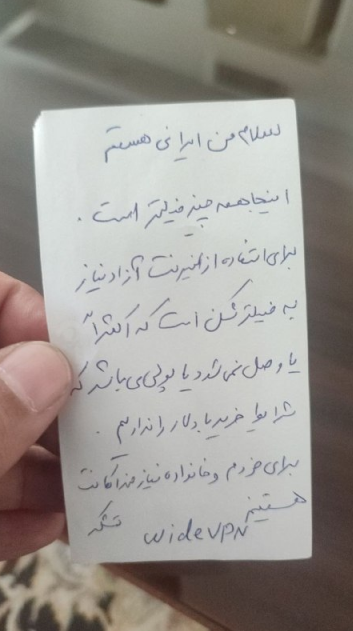 سلام من ایرانی هستم
اینجا همه چیز فیلتر است .
برای استفاده از اینترنت آزاد نیاز
به فیلترشکن است که اکثراً
یا وصل نمی شود یا پولی می باشد که
شرایط خرید با دلار را نداریم .
برای خودم و خانواده نیازمند اکانت
هستیم
تشکر
wideVPN